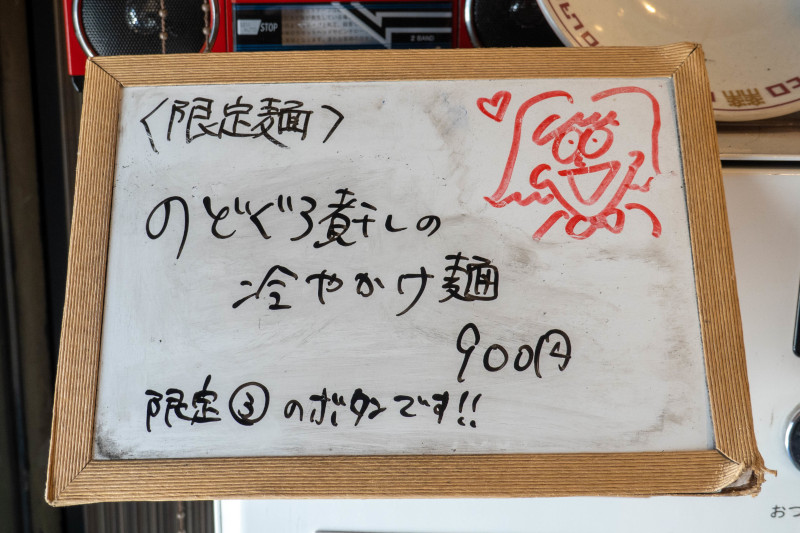 STOP
2 BAND
〈限定麺〉
のどぐろ煮干しの
冷やかけ麺
900円
限定③のボタンです!!
おつ